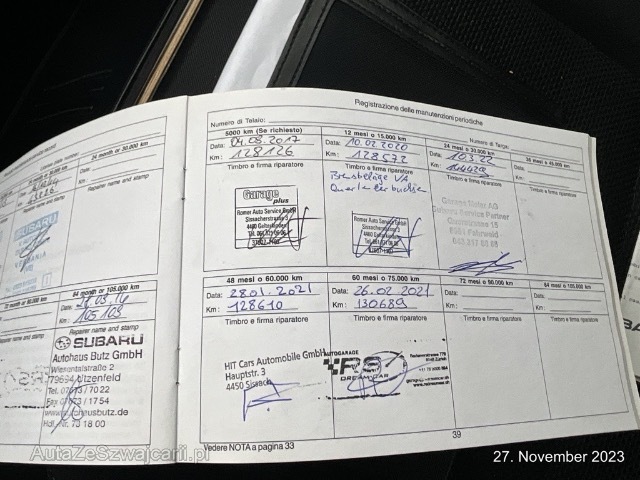 Registrazione delle manutenzioni periodiche
Numero di Telaio:
Numero di Targa:
5000 km (Se richiesto)
Data: 04.08.2017
Km: 128126
Timbro e firma riparatore
Garage plus
Romer Auto Service GmbH
Sissacherstrasse 3
4460 Gelterkinden
12 mesi o 15.000 km
Data: 10.02.2020
Km: 128572
Timbro e firma riparatore
Bremsbeläge VA
Romer Auto Service GmbH
Sissacherstrasse 3
4460 Gelterkinden
24 mesi o 30.000 km
Data: 10.3.22
Km:
Timbro e firma riparatore
Garage Meier AG
Service Partner
36 mesi o 45.000 km
Data:
Km:
Timbro e firma riparatore
48 mesi o 60.000 km
Data: 28.01.2021
Km: 128610
Timbro e firma riparatore
HIT Cars Automobile GmbH
Hauptstr. 3
4450 Sissach
60 mesi o 75.000 km
Data: 26.02.2021
Km: 130689
Timbro e firma riparatore
AUTOGARAGE
RS
DREAM-CAR
72 mesi o 90.000 km
Data:
Km:
Timbro e firma riparatore
84 mesi o 105.000 km
Data:
Km:
Timbro e firma riparatore
Vedere NOTA a pagina 33
39
24 month or 30.000 km
Date:
Km:
Repairer name and stamp
Repairer name and stamp
SUBARU
84 month or 105.000 km
Km: 105103
Repairer name and stamp
SUBARU
Autohaus Butz GmbH
Wiesentalstraße 2
Tel.
Fax
Hdl. Nr. 73 18 00
AutaZeSzwajcarii.pl
27. November 2023